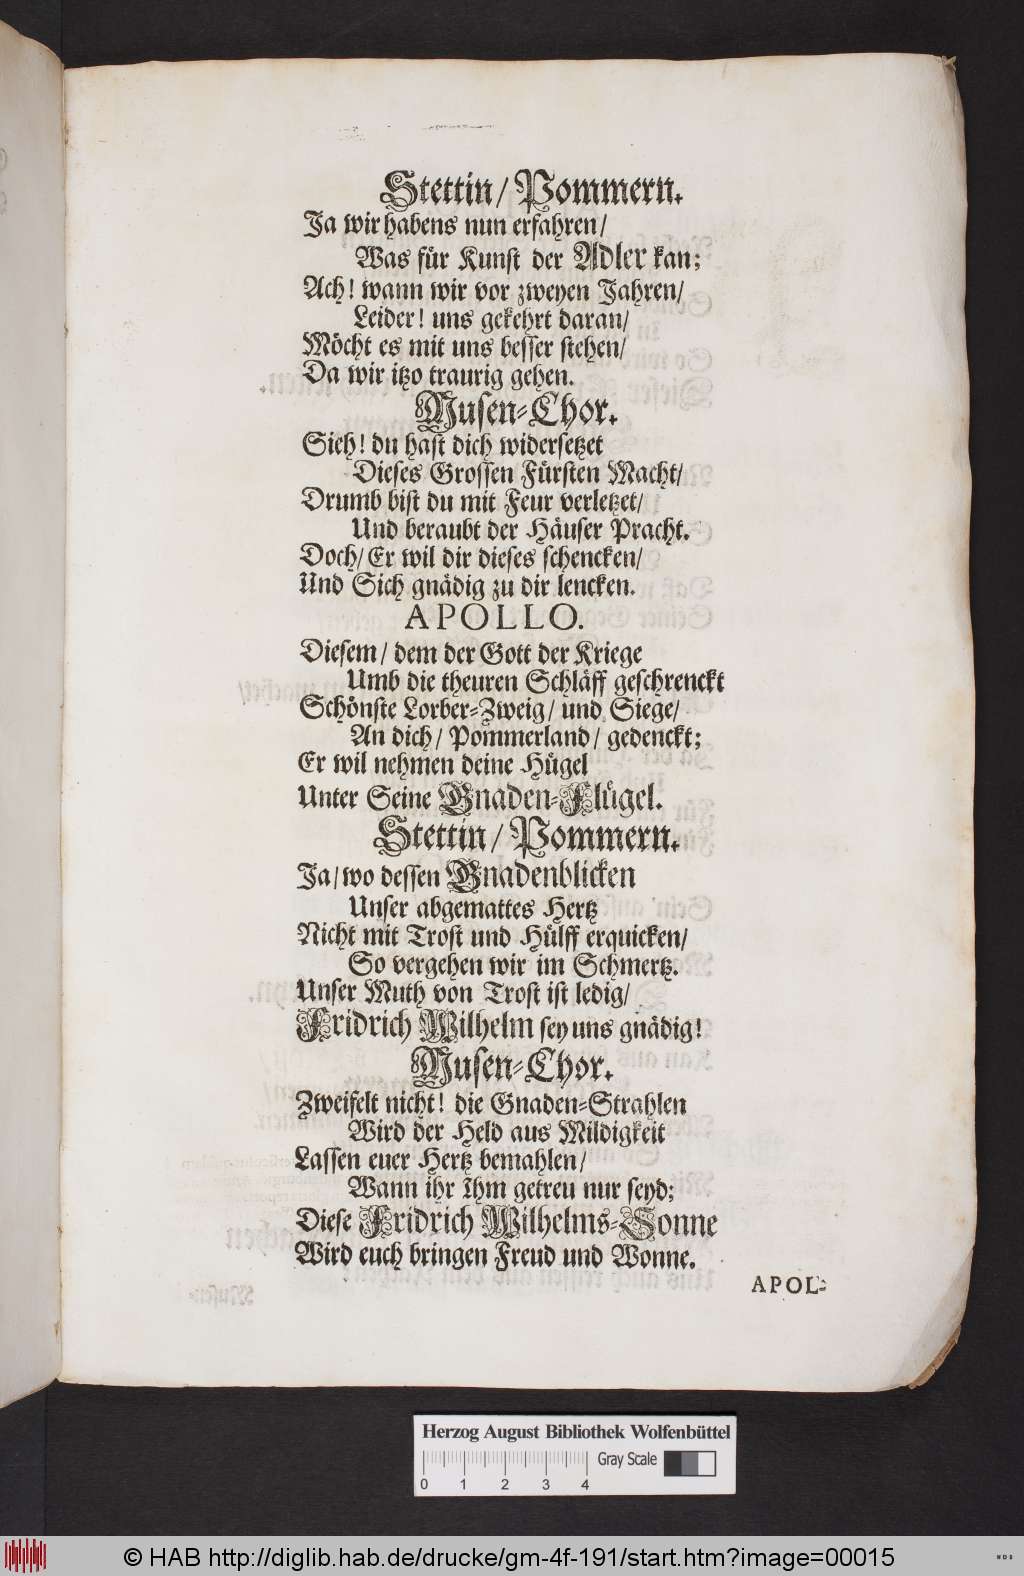 Stettin/ Pommern.
Ja wir habens nun erfahren/
Was für Kunst der Adler kan;
Ach! wann wir vor zweyen Jahren/
Leider! uns gekehrt daran/
Möcht es mit uns besser stehen/
Da wir itzo traurig gehen.
Musen-Chor.
Sieh! du hast dich widersetzet
Dieses Grossen Fürsten Macht/
Drumb bist du mit Feur verletzet/
Und beraubt der Häuser Pracht.
Doch/ Er wil dir dieses schencken/
Und Sich gnädig zu dir lencken.
APOLLO.
Diesem/ dem der Gott der Kriege
Umb die theuren Schläff geschrenckt
Schönste Lorber-Zweig/ und Siege/
An dich/ Pommerland/ gedenckt;
Er wil nehmen deine Hügel
Unter Seine Gnaden-Flügel.
Stettin/ Pommern.
Ja/ wo dessen Gnadenblicken
Unser abgemattes Hertz
Nicht mit Trost und Hülff erquicken/
So vergehen wir im Schmertz.
Unser Muth von Trost ist ledig/
Fridrich Wilhelm sey uns gnädig!
Musen-Chor.
Zweifelt nicht! die Gnaden-Strahlen
Wird der Held aus Mildigkeit
Lassen euer Hertz bemahlen/
Wann ihr Ihm getreu nur seyd;
Diese Fridrich Wilhelms-Sonne
Wird euch bringen Freud und Wonne.
APOL-
Herzog August Bibliothek Wolfenbüttel
Gray Scale
0 1 2 3 4
© HAB http://diglib.hab.de/drucke/gm-4f-191/start.htm?image=00015